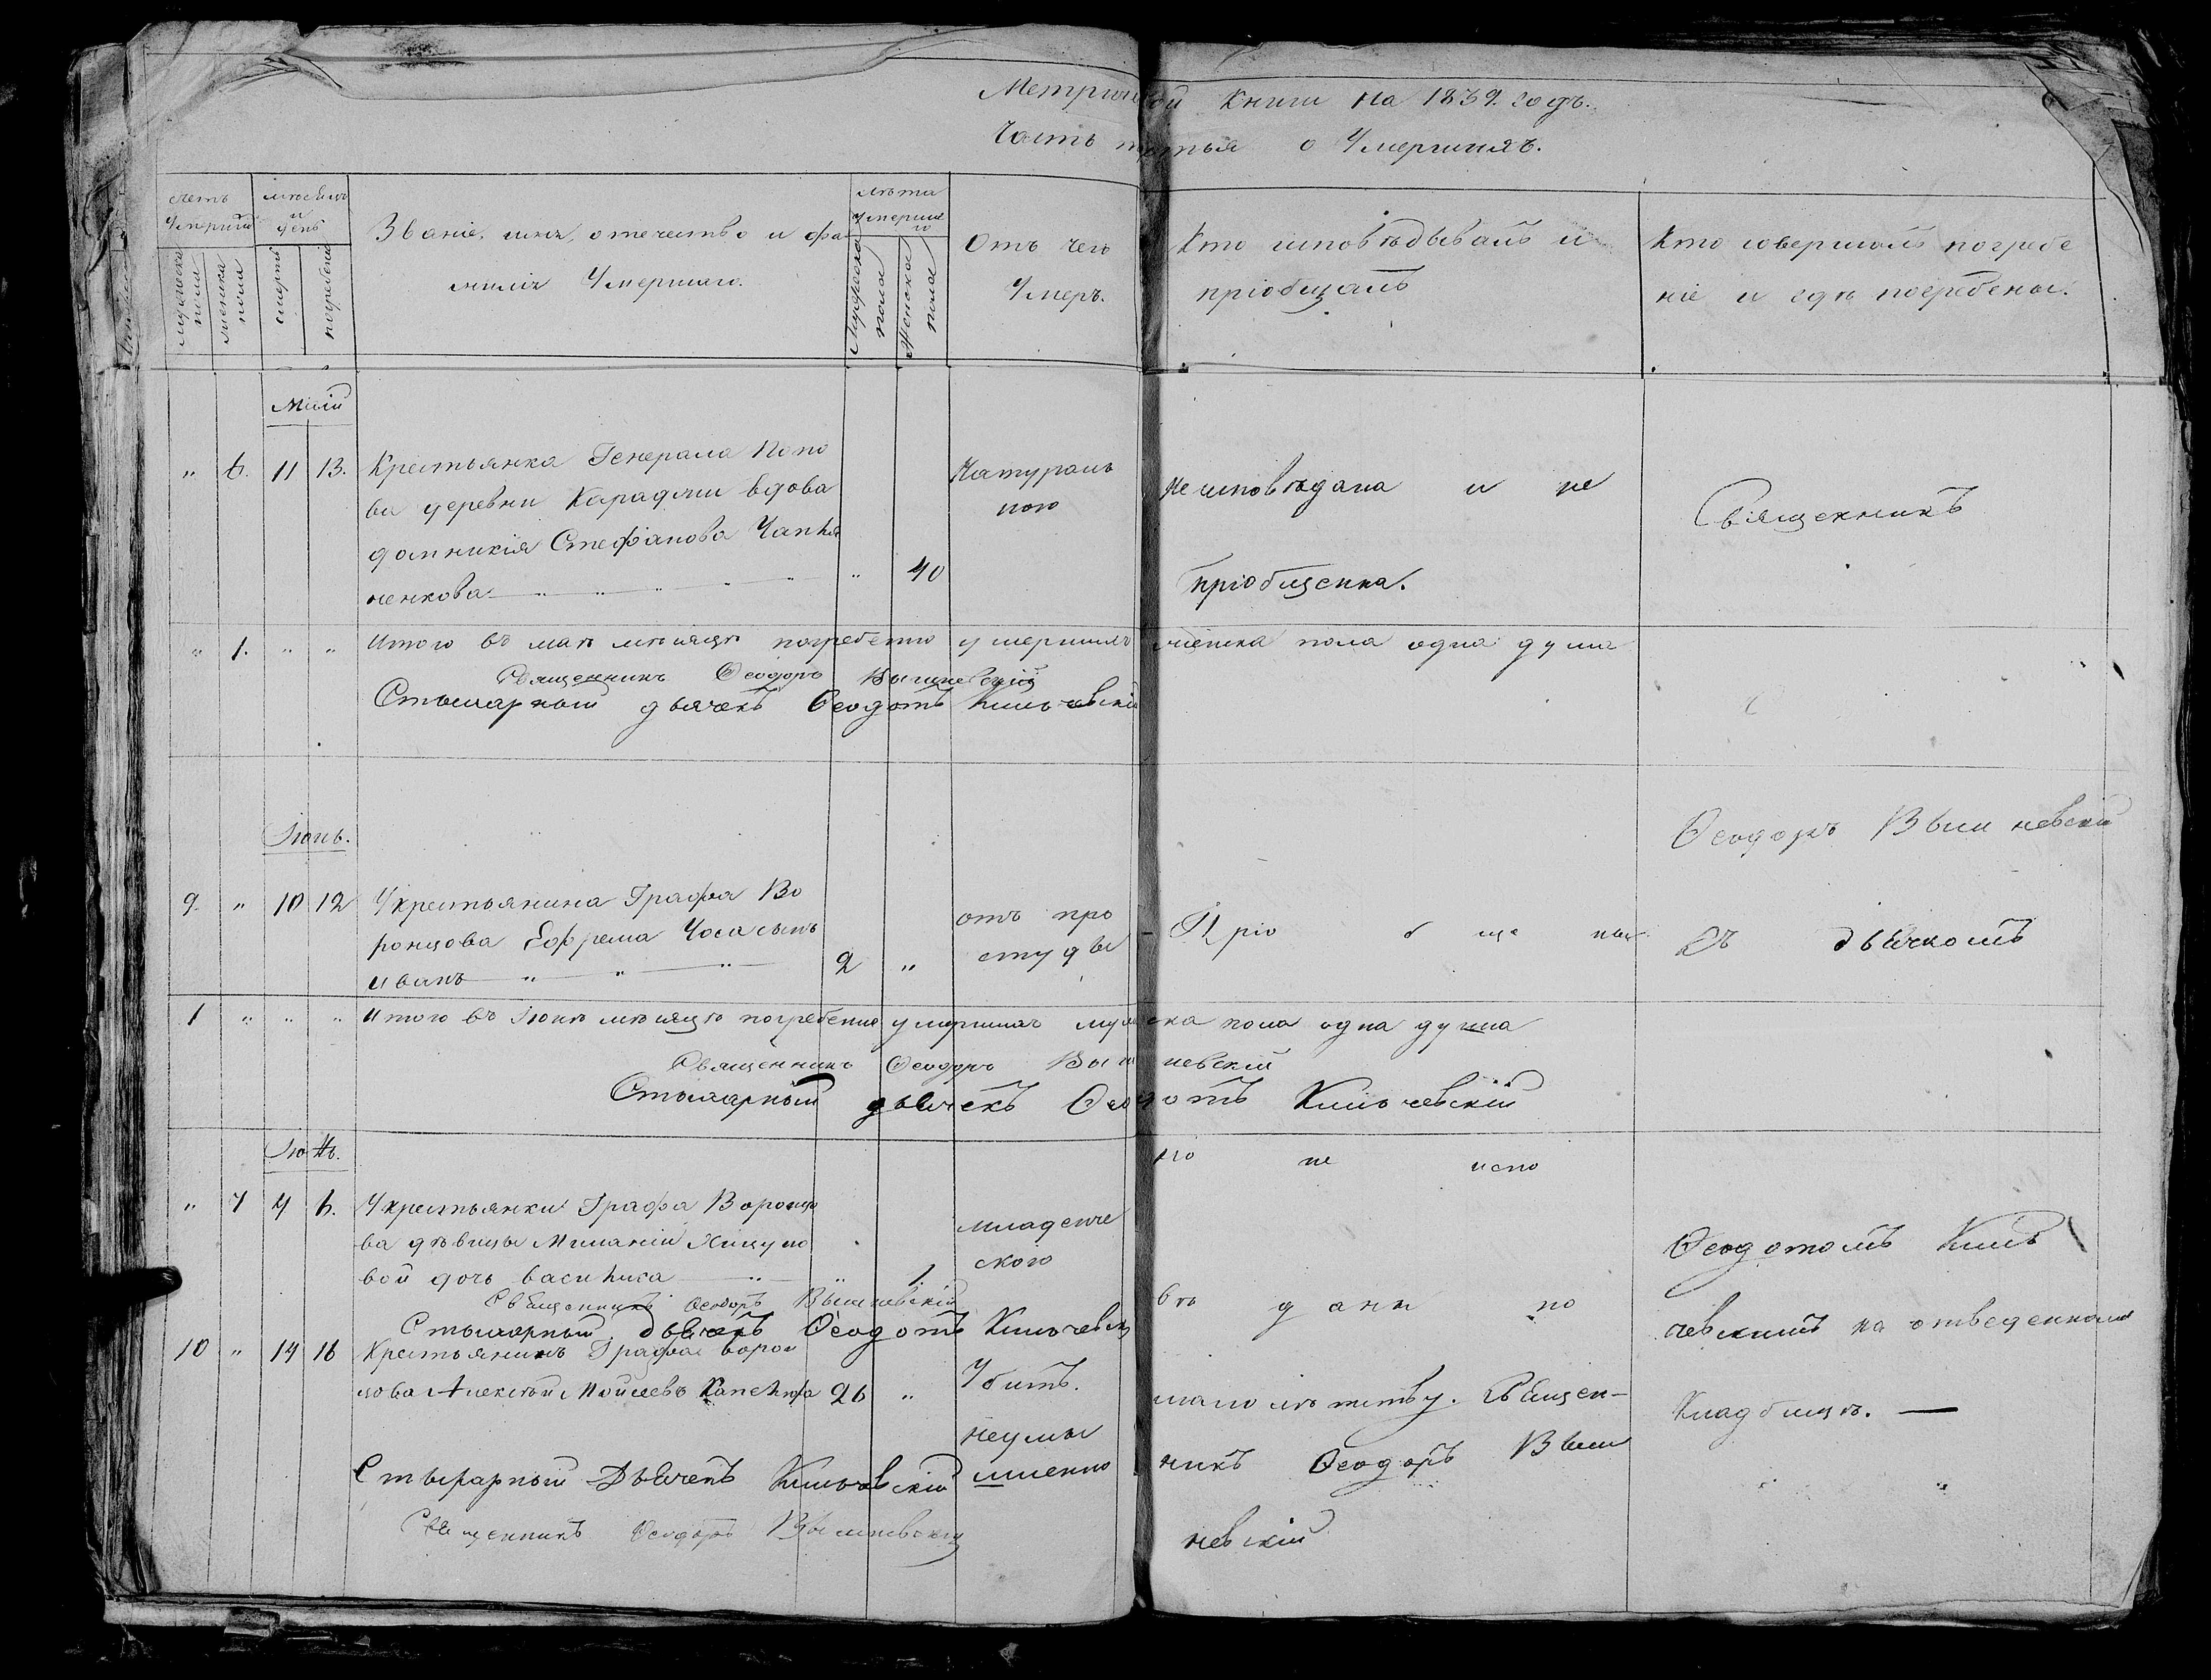 Метрической Книги на 1839. годъ.
Часть третья о Умершихъ.
счетъ Умерших
мѣсяцъ и день
Званіе, имя, отечество и фа
миліи Умершаго.
лѣта умерша го
Отъ чего
Умеръ.
Кто исповѣдывалъ и
пріобщалъ
Кто совершалъ погребе
ніе и гдѣ погребены.
мужеска пола
женска пола
смерть
погребені
Мужеска пола
Женска пола
Маій
" 6. 11 13. Крестьянка Генерала Попо
ва деревни Караджи вдова
домникія Стефанова Чапле
ненкова " 40
Натураль
ного
не исповѣдана и не
пріобщенна.
Священникъ
" 1. " " Итого въ маѣ мѣсяцѣ погребенно умершихъ женска пола одна душа
Священникъ Феодоръ Вышневскій
Стыхарный дьячекъ Феодотъ Кильчевскій
Іюнь.
Феодоръ Вышневскій
9. " 10 12 Укрестьянина Графа Во
ронцова Ефрема Чоса сынъ
иванъ 2 "
отъ про
студы
Пріо б ще ны
съ дьячкомъ
1 " " " Итого въ Іюнѣ мѣсяцѣ погребенно умершихъ мужеска пола одна душа
Священникъ Феодоръ Вышневскій
Стыхарный дьячекъ Феодотъ Кильчевскій
Іюль.
но не испо
" 7 4 6. Укрестьянки Графа Воронцо
ва дѣвицы Миланіи
вой дочь василиса " 1
младенче
ского
Феодотомъ Киль
Священникъ Феодоръ Вышневскій
вѣ данны по
Стыхарный дьячекъ Феодотъ Кильчевскій
чевскимъ на отведенномъ
10 " 14 16 Крестьянинъ Графа ворон
цова Алексѣй Мойсеевъ 26 "
Убитъ.
неумы
шленно
малолѣтству. Священ-
Кладбищѣ.
никъ Феодоръ Выш
Стыхарный Дьячекъ Кильчевскій
невскій
Священникъ Феодоръ Вышневскій